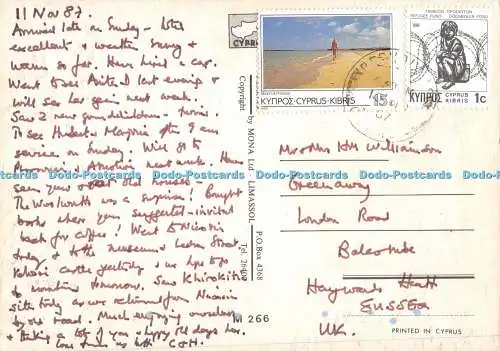 11 Nov 87.
Arrived late on Sunday - Hotel
excellent & weather sunny &
warm so far. Have hired a car.
Went to see Anita last evening &
will see her again next week.
Saw 2 new grandchildren - twins.
To see Hubert & Marjorie after 9 am
service on Sunday. Will go to
next week. Have
seen your old houses -
was a surprise! Bought
books where you suggested - invited
back for coffee! Went to Nicosia
today & to the museum & Ledra Street.
Kolossi castle yesterday & we hope to go
to tomorrow. Saw Khirokitia
site today as we returned from Nicosia
by the road. Much enjoying ourselves
& thinking a lot of you & happy old days here.
Love from us both C & H.
CYPRUS
Copyright by MONA Ltd - LIMASSOL P.O.Box 4368
Tel. 26
M 266
ΚΥΠΡΟΣ-CYPRUS-KIBRIS 15c
1c
ΚΥΠΡΟΣ CYPRUS KIBRIS
Mr & Mrs HM Williamson
Greenaway
London Road
Balcombe
Haywards Heath
SUSSEX
UK.
PRINTED IN CYPRUS
www.worldpostcards.eu